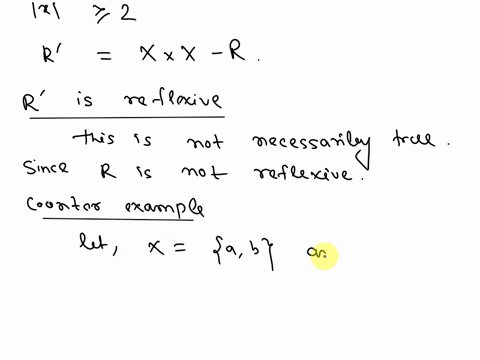 |x| ⩾ 2
R′ = X × X − R.
R′ is reflexive
this is not necessarily true.
Since R is not reflexive.
Coontor example
let, X = {a, b}